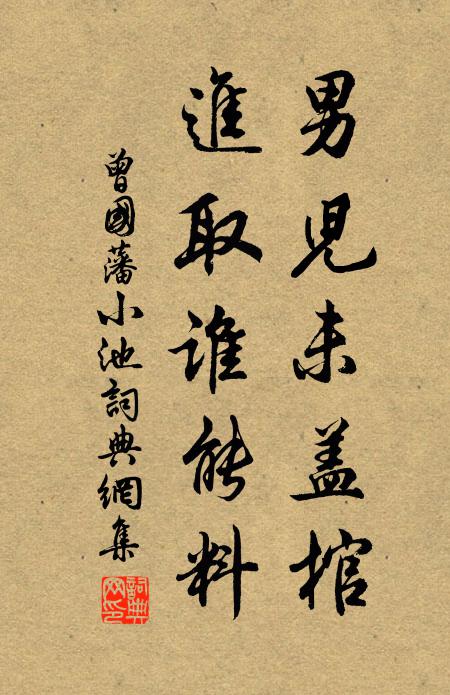 男兒未盖棺
進取誰能料
曾國藩小池詞典網集
詞典網印